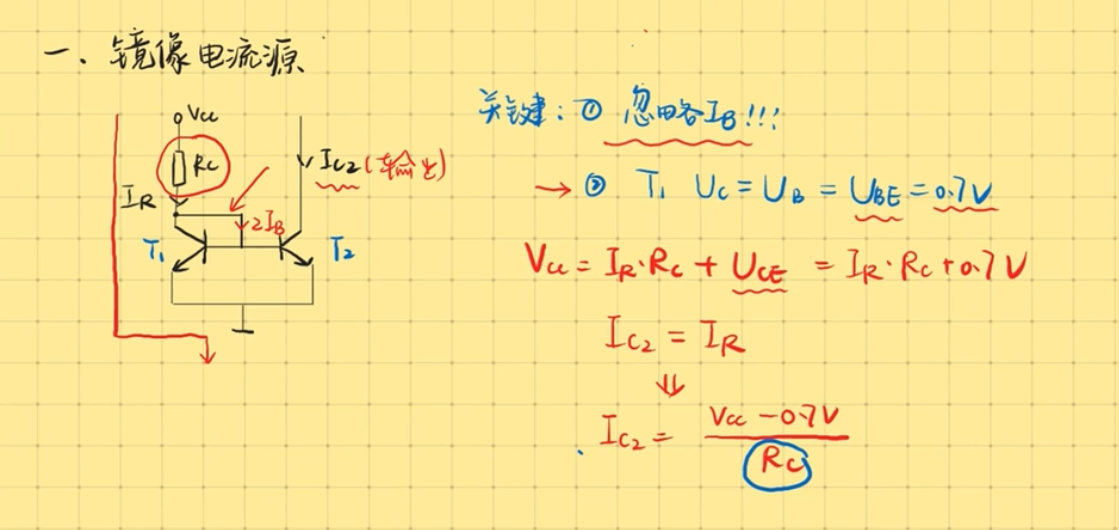 一、镜像电流源
Vcc
Rc
IR
IC2(输出)
2IB
T1
T2
关键:① 忽略IB!!!
→ ② T1 UC = UB = UBE = 0.7V
Vcc = IR·Rc + UCE = IR·Rc+0.7V
IC2 = IR
⇓
IC2 = (Vcc - 0.7V) / Rc